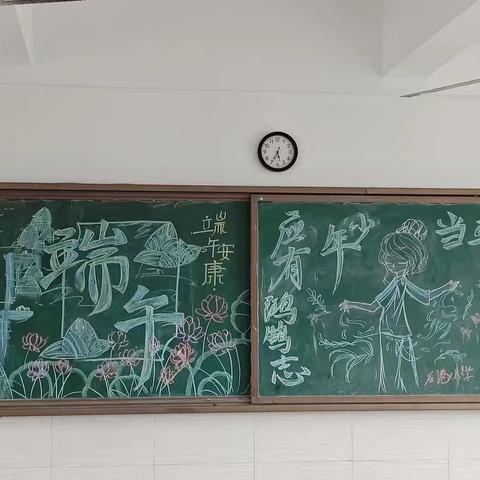 端午
端午安康
年少
应有鸿鹄志
当
后港小学